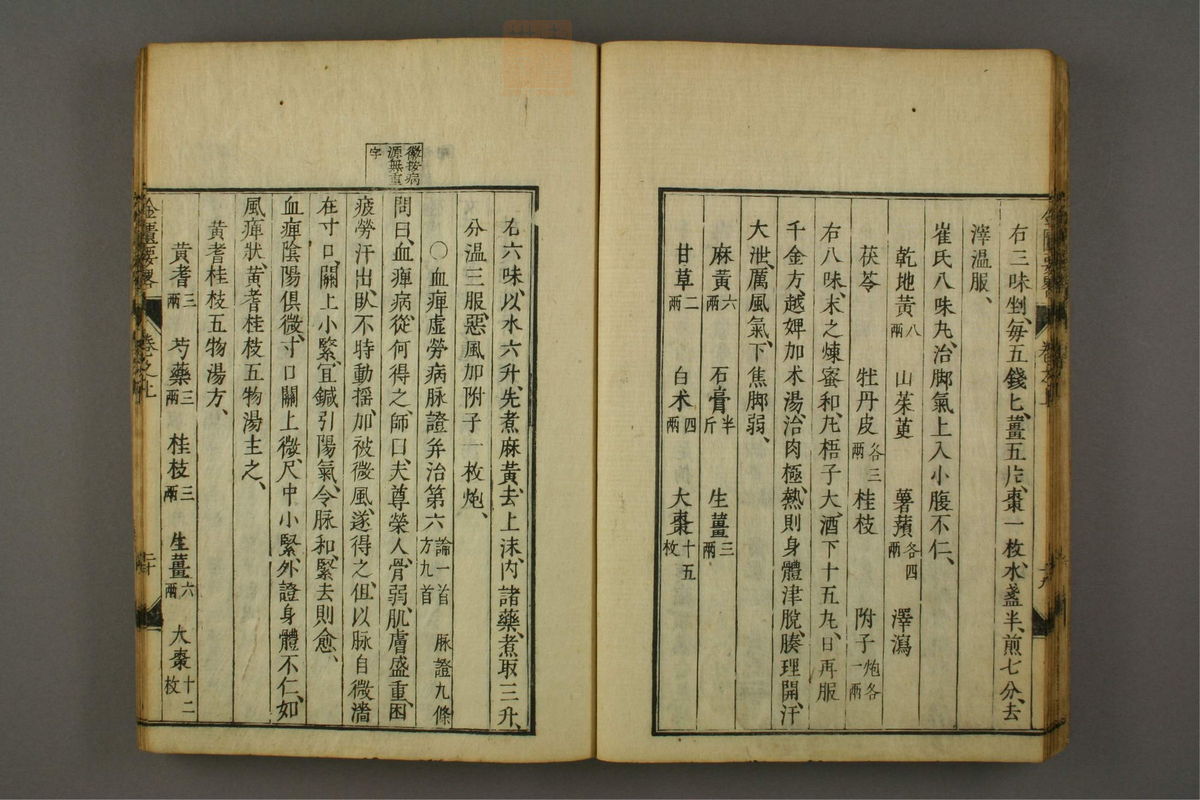 右三味、剉、每五錢匕、薑五片、棗一枚、水盞半、煎七分、去
滓溫服、
崔氏八味丸、治脚氣上入小腹不仁、
乾地黃八兩 山茱萸 薯蕷各四兩 澤瀉
茯苓 牡丹皮各三兩 桂枝 附子炮各一兩
右八味、末之、煉蜜和丸、梧子大、酒下十五丸、日再服
千金方、越婢加朮湯、治肉極、熱則身體津脫、腠理開、汗
大泄、厲風氣、下焦脚弱、
麻黃六兩 石膏半斤 生薑三兩
甘草二兩 白朮四兩 大棗十五枚
右六味、以水六升、先煮麻黃、去上沫、內諸藥、煮取三升、
分溫三服、惡風加附子一枚炮、
○血痺虛勞病脉證幷治第六論一首 脉證九條 方九首
徽按病源無重字
問曰、血痺病從何得之、師曰、夫尊榮人、骨弱、肌膚盛重、因
疲勞汗出臥不時動搖、加被微風、遂得之、但以脉自微濇
在寸口、關上小緊、宜鍼引陽氣、令脉和、緊去則愈、
血痺陰陽俱微、寸口關上微、尺中小緊、外證身體不仁、如
風痺狀、黃耆桂枝五物湯主之、
黃耆桂枝五物湯方、
黃耆三兩 芍藥三兩 桂枝三兩 生薑六兩 大棗十二枚
金匱要畧 卷之上 二十